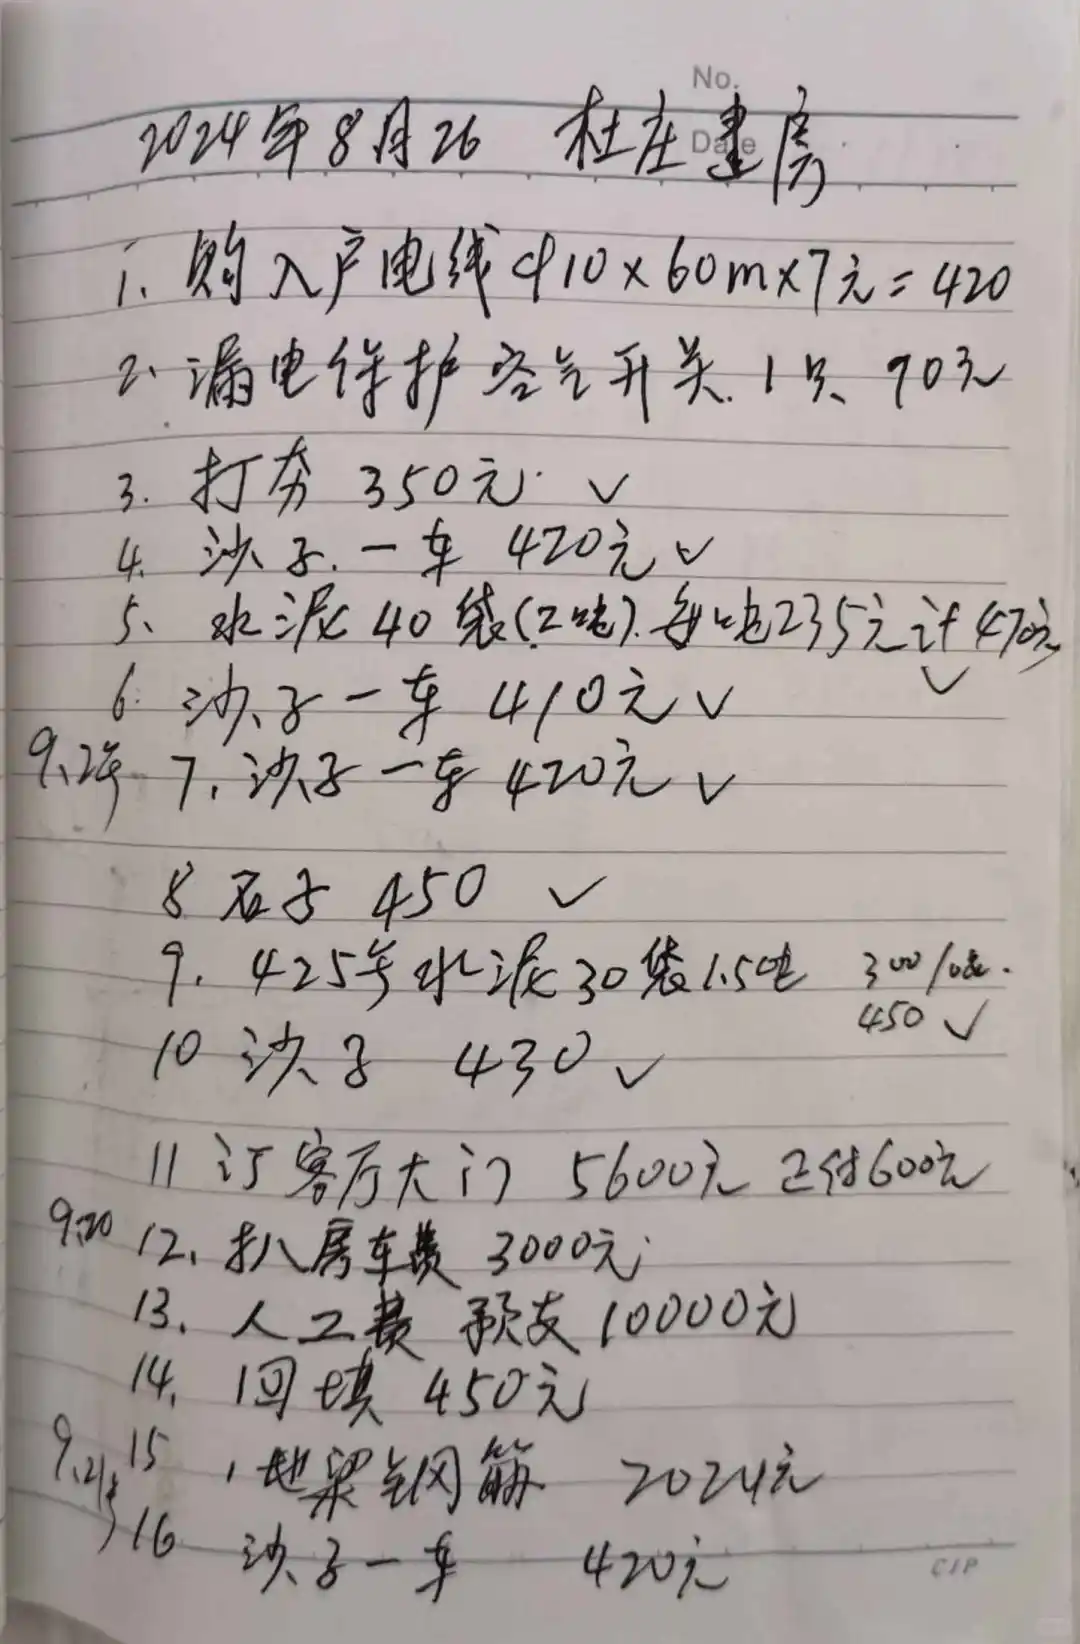 No.
Date
2024年8月26 杜庄建房
1. 购入户电线φ10×60m×7元=420
2. 漏电保护空气开关.1只 90元
3. 打夯 350元. ✓
4. 沙子.一车 420元 ✓
5、水泥40袋(2吨).每吨235元计470元 ✓
6. 沙子一车 410元 ✓
9.2号 7. 沙子一车 420元 ✓
8 石子 450 ✓
9. 425号水泥30袋1.5吨 300/吨.
450 ✓
10 沙子 430 ✓
11 订客厅大门 5600元 已付600元
9.20 12. 扒房车费 3000元
13. 人工费 预支10000元
14. 回填 450元
9.21号 15、地梁钢筋 2024元
16 沙子一车 420元
CIP